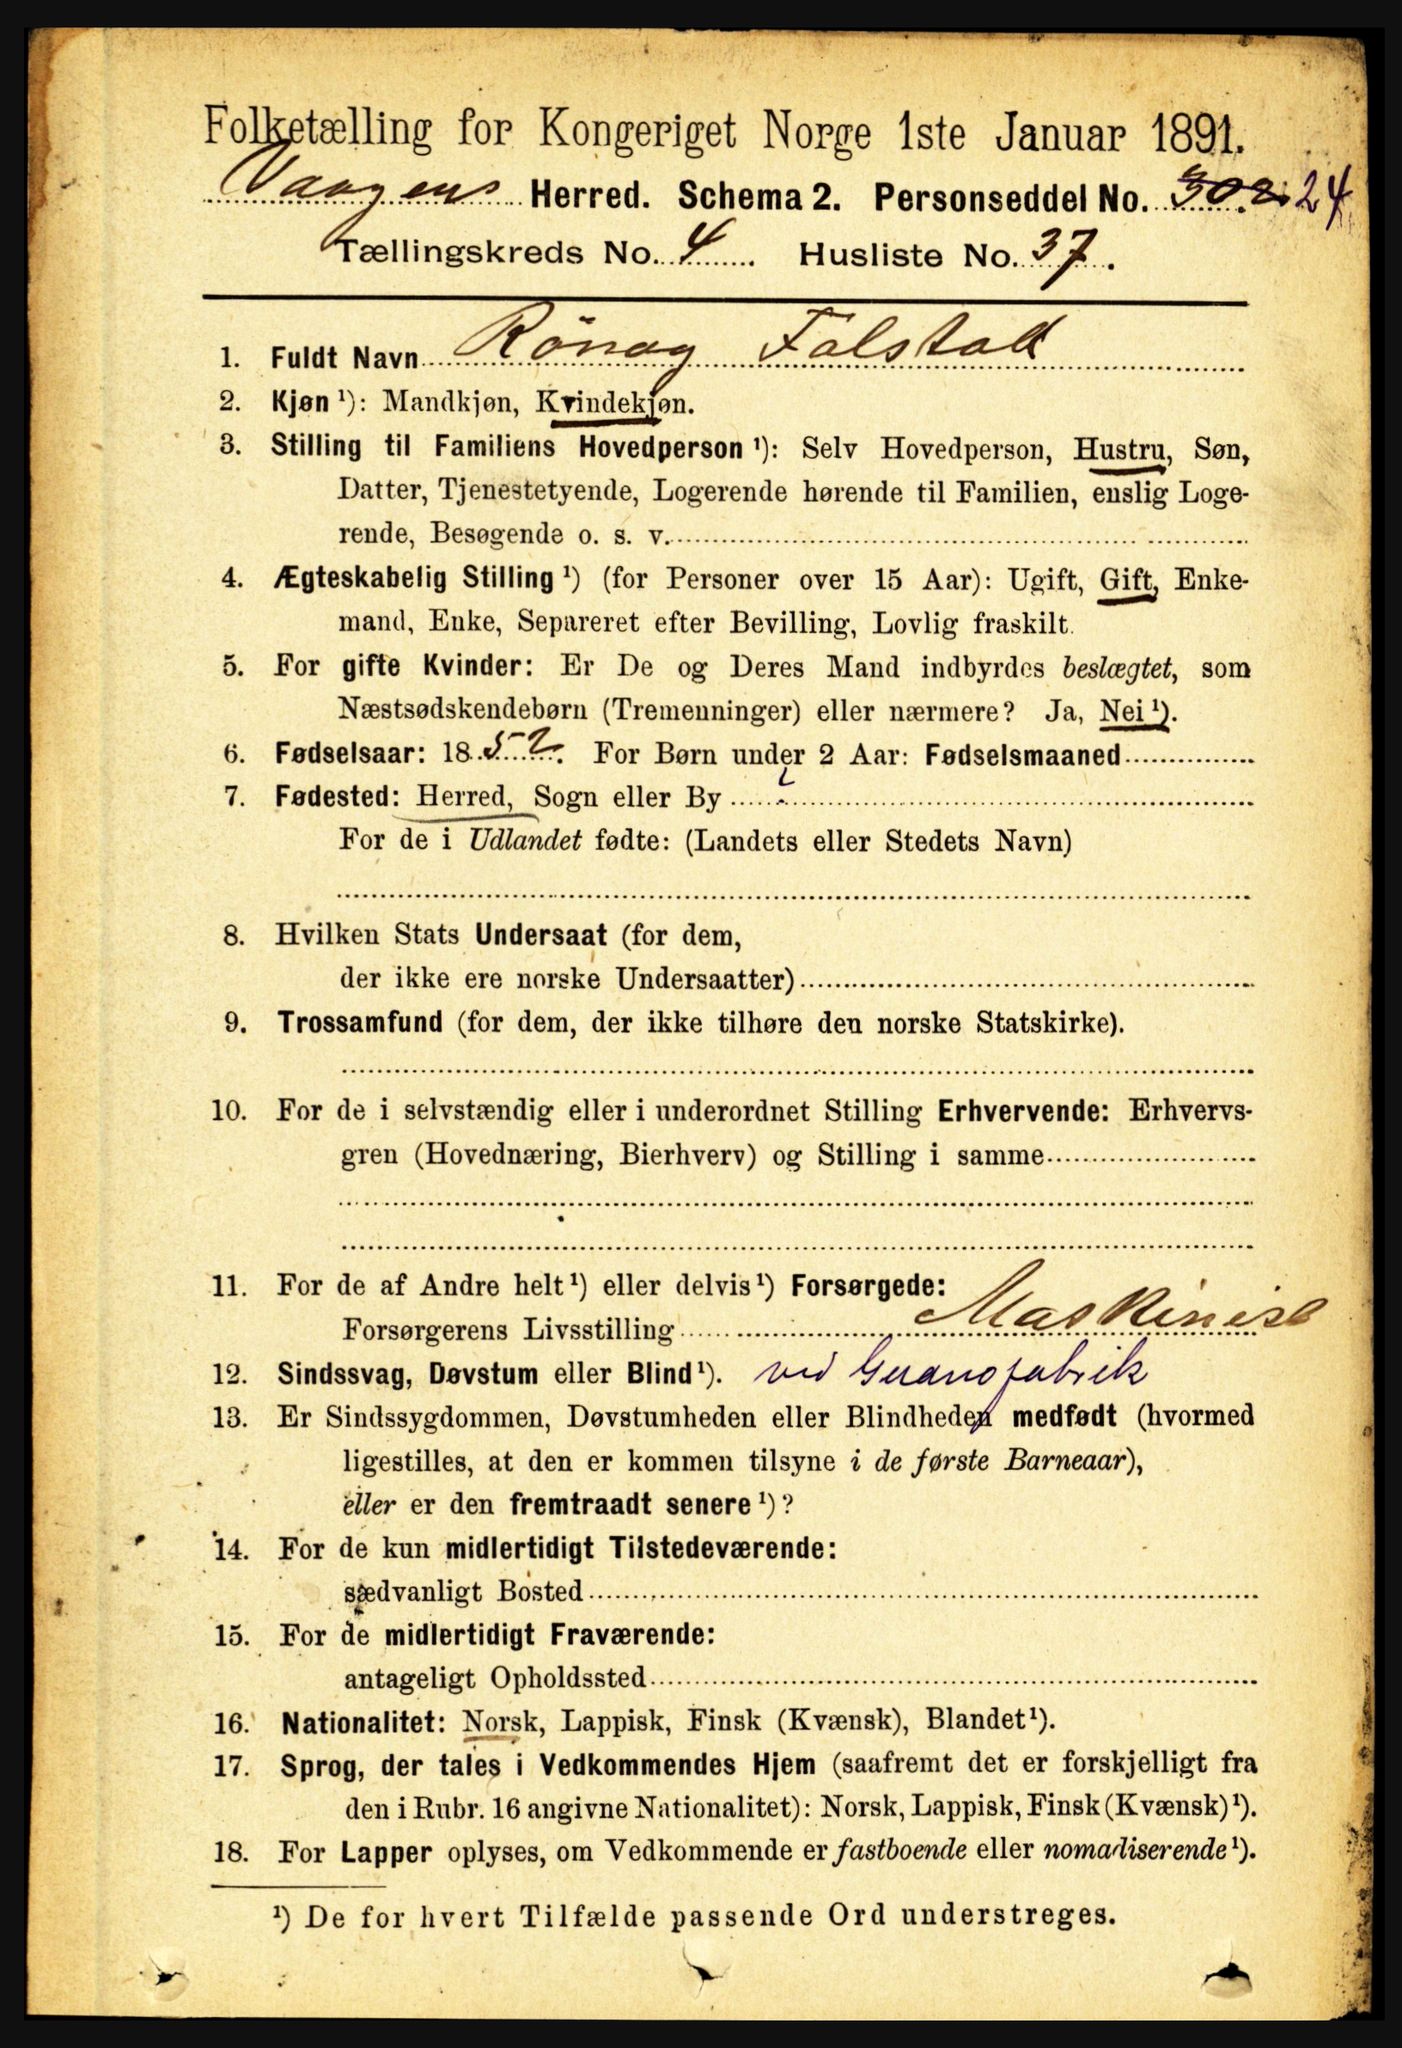 Folketælling for Kongeriget Norge 1ste Januar 1891.
Vaagens Herred. Schema 2. Personseddel No. 302 24
Tællingskreds No. 4. Husliste No. 37.
1. Fuldt Navn Rönog Falstad
2. Kjøn ¹): Mandkjøn, Kvindekjøn.
3. Stilling til Familiens Hovedperson ¹): Selv Hovedperson, Hustru, Søn,
Datter, Tjenestetyende, Logerende hørende til Familien, enslig Loge-
rende, Besøgende o. s. v.
4. Ægteskabelig Stilling ¹) (for Personer over 15 Aar): Ugift, Gift, Enke-
mand, Enke, Separeret efter Bevilling, Lovlig fraskilt.
5. For gifte Kvinder: Er De og Deres Mand indbyrdes beslægtet, som
Næstsødskendebørn (Tremenninger) eller nærmere? Ja, Nei ¹).
6. Fødselsaar: 1852. For Børn under 2 Aar: Fødselsmaaned
7. Fødested: Herred, Sogn eller By
For de i Udlandet fødte: (Landets eller Stedets Navn)
8. Hvilken Stats Undersaat (for dem,
der ikke ere norske Undersaatter)
9. Trossamfund (for dem, der ikke tilhøre den norske Statskirke).
10. For de i selvstændig eller i underordnet Stilling Erhvervende: Erhvervs-
gren (Hovednæring, Bierhverv) og Stilling i samme
11. For de af Andre helt ¹) eller delvis ¹) Forsørgede:
Forsørgerens Livsstilling Maskinist
12. Sindssvag, Døvstum eller Blind ¹). ved Guanofabrik
13. Er Sindssygdommen, Døvstumheden eller Blindheden medfødt (hvormed
ligestilles, at den er kommen tilsyne i de første Barneaar),
eller er den fremtraadt senere ¹)?
14. For de kun midlertidigt Tilstedeværende:
sædvanligt Bosted
15. For de midlertidigt Fraværende:
antageligt Opholdssted
16. Nationalitet: Norsk, Lappisk, Finsk (Kvænsk), Blandet ¹).
17. Sprog, der tales i Vedkommendes Hjem (saafremt det er forskjelligt fra
den i Rubr. 16 angivne Nationalitet): Norsk, Lappisk, Finsk (Kvænsk) ¹).
18. For Lapper oplyses, om Vedkommende er fastboende eller nomadiserende ¹).
¹) De for hvert Tilfælde passende Ord understreges.